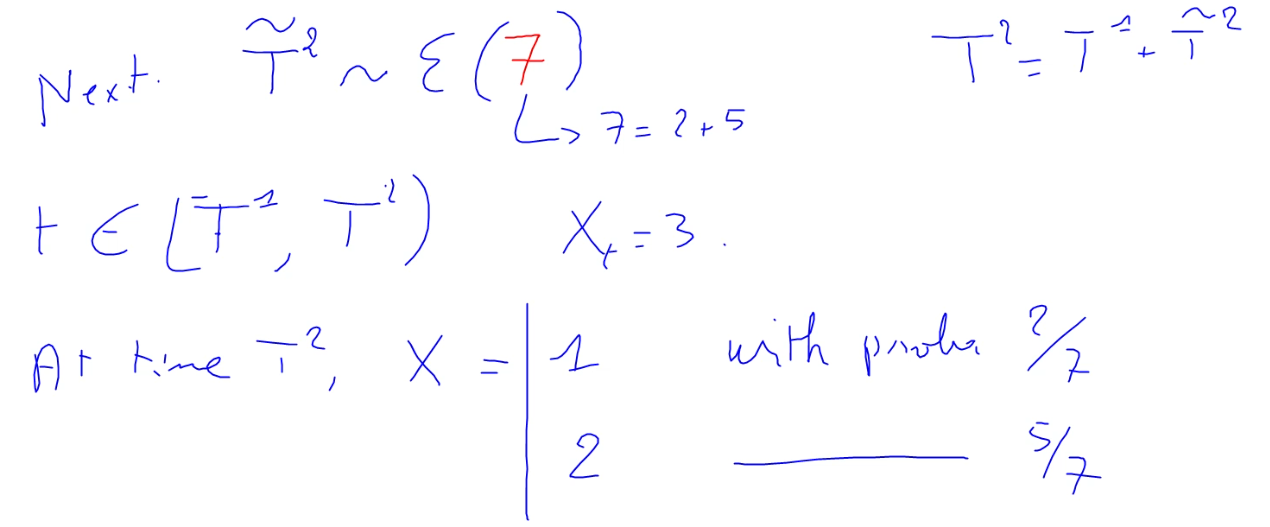 Next. T̃² ~ ℰ(7)
T² = T¹ + T̃²
↳ 7 = 2 + 5
t ∈ [T¹, T²) Xₜ = 3.
At time T², X = | 1 with proba 2/7
2 ——— 5/7